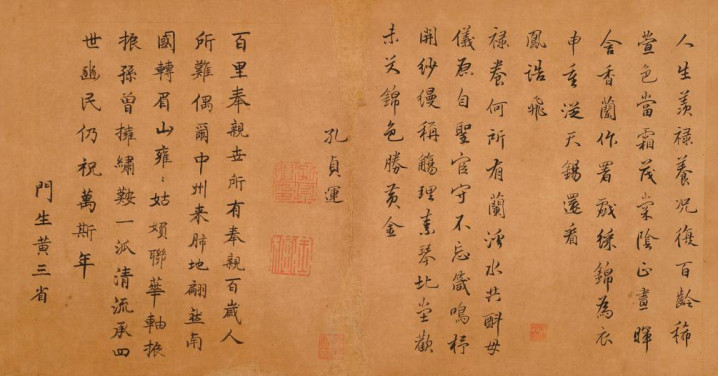 人生羨祿養況復百齡稀
萱色當霜茂棠陰正晝暉
含香蘭作署戲綵錦為衣
申重從天錫還看
鳳誥飛
祿養何所有蘭水共斟母
儀原自聖官守不忘箴鳴
開紗縵稱觴理素琴北堂歡
未艾錦色勝黃金
孔貞運
百里奉親世所有奉親百歲人
所難偶爾中州來肺地翩然南
國轉眉山雍〻姑媍聯華軸振
振孫曾擁繡鞍一派清流承四
世豳民仍祝萬斯年
門生黃三省